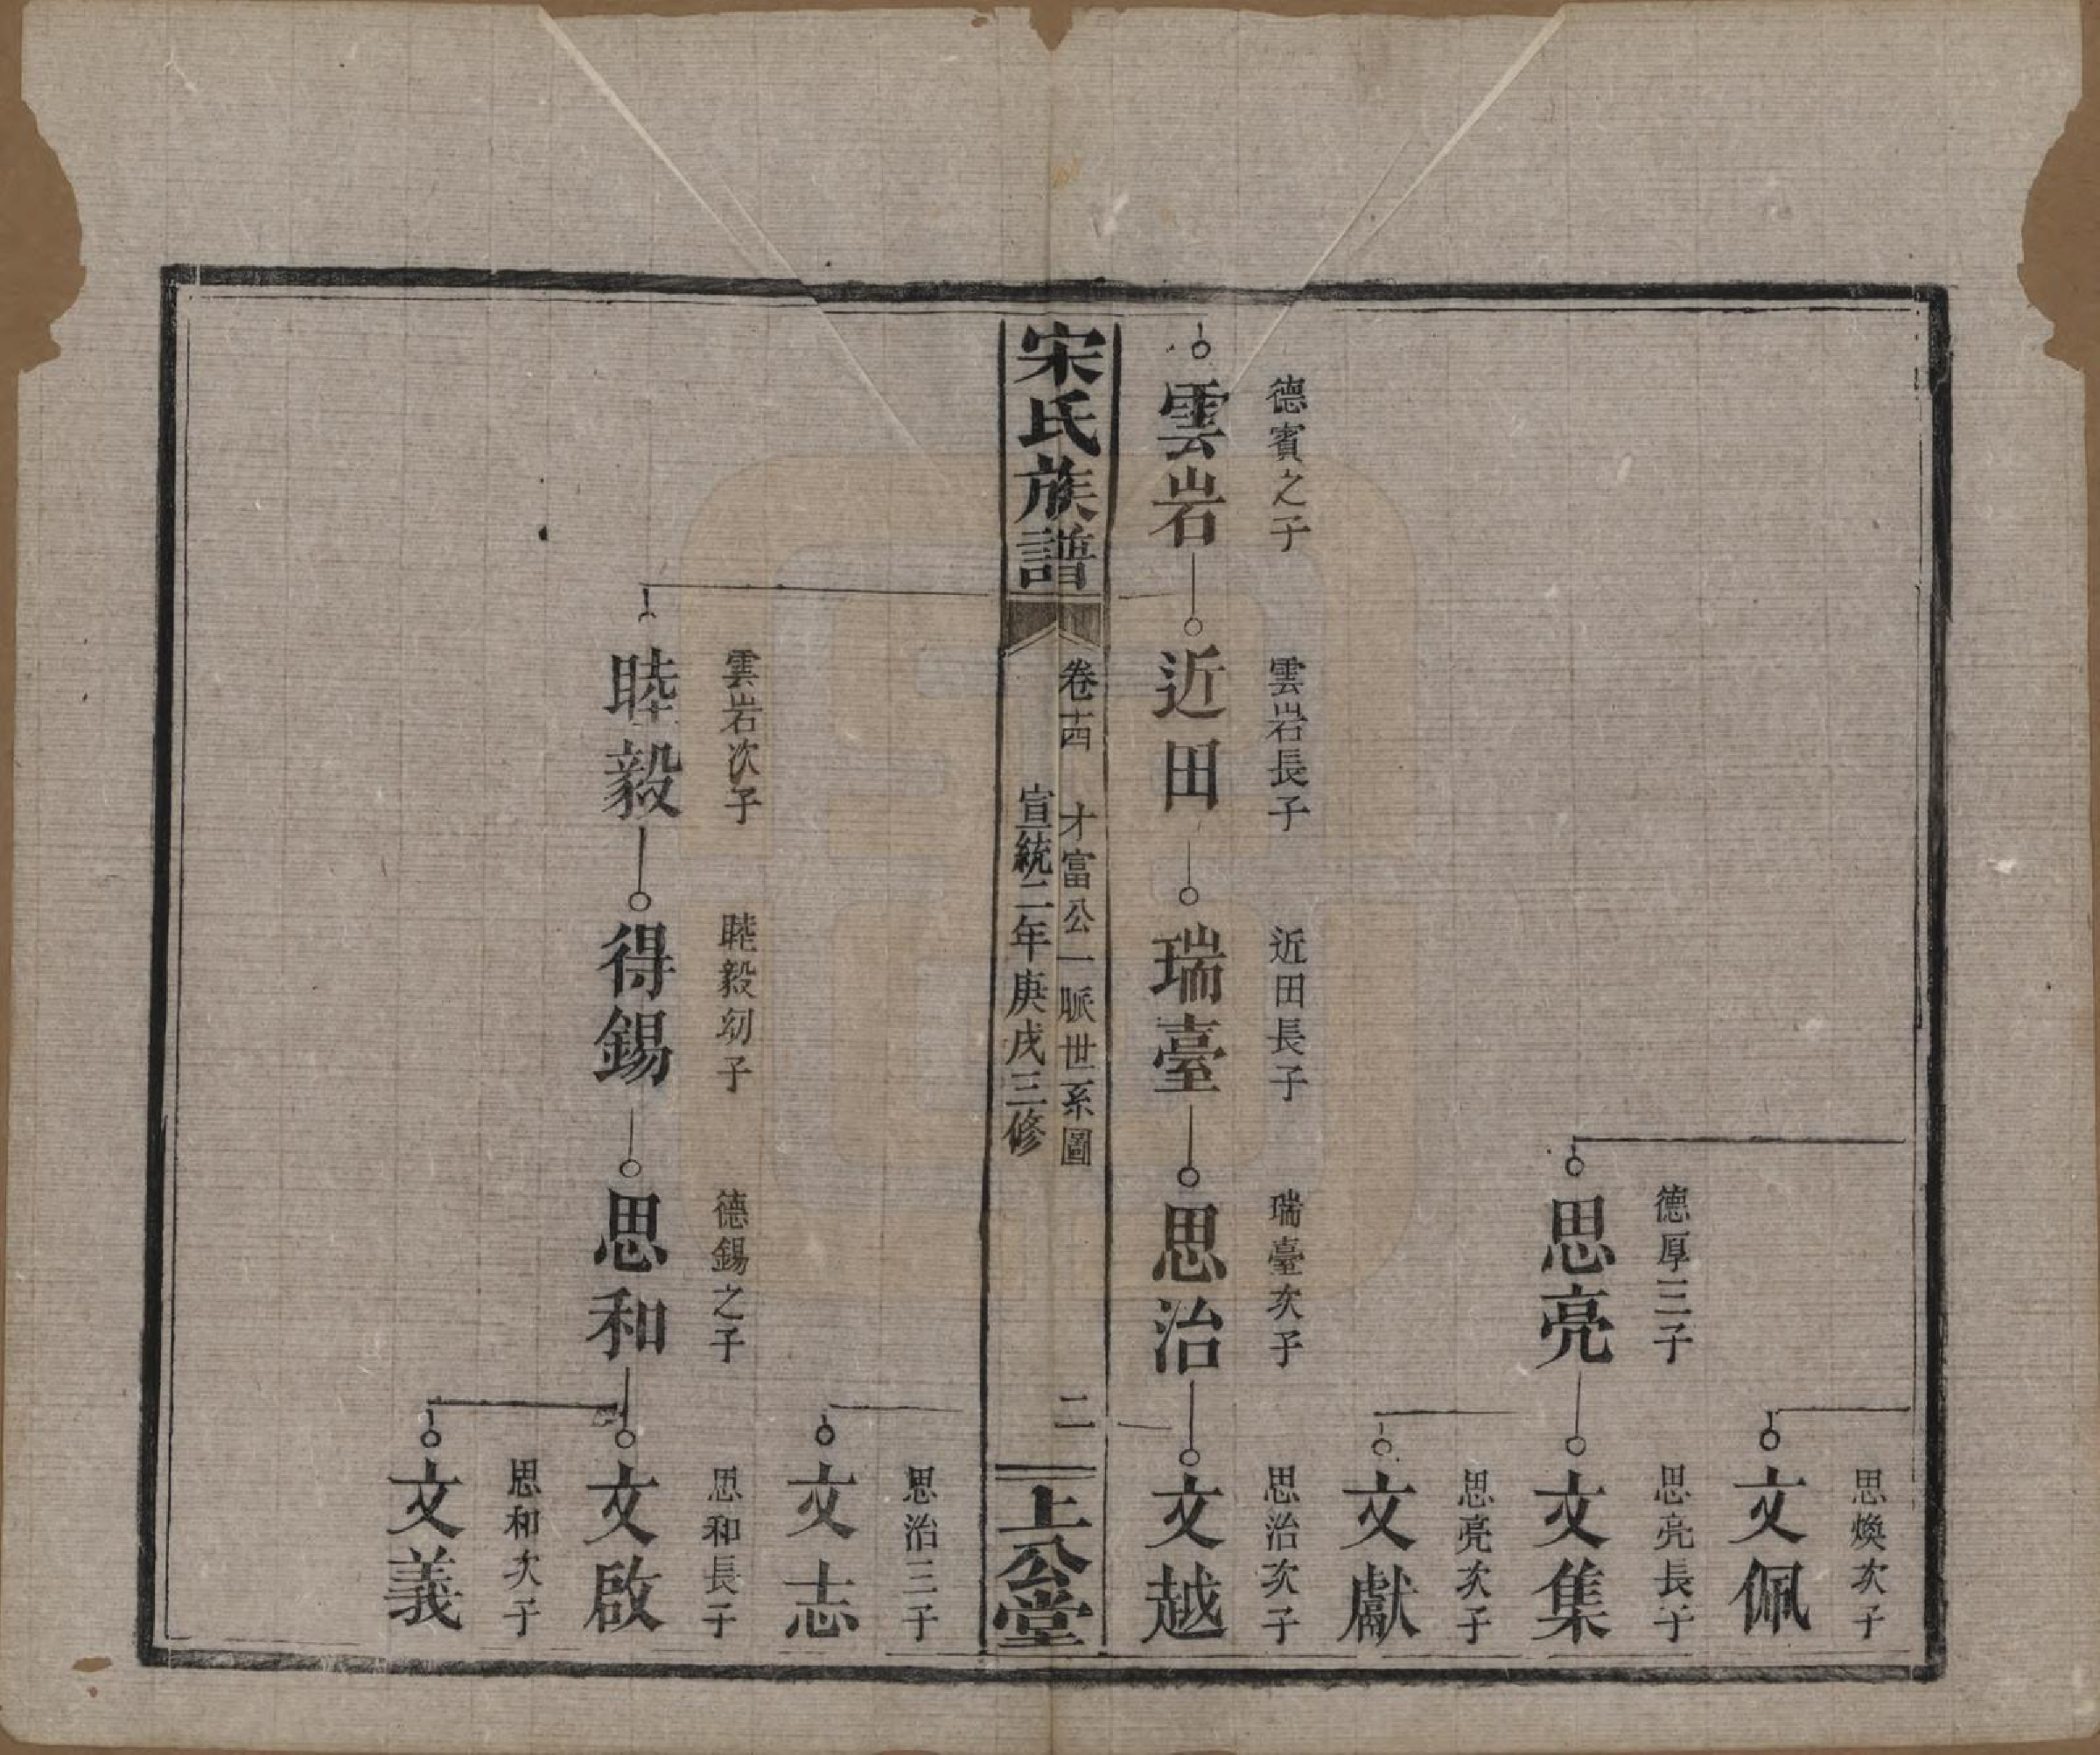 思煥次子
文佩
德厚三子
思亮
思亮長子
文集
思亮次子
文獻
德賓之子
雲岩
雲岩長子
近田
近田長子
瑞臺
瑞臺次子
思治
思治次子
文越
宋氏族譜
卷十四 才富公一脈世系圖
二
宣統二年庚戌三修
上公堂
思治三子
文志
雲岩次子
睦毅
睦毅幼子
得錫
德錫之子
思和
思和長子
文啟
思和次子
文義